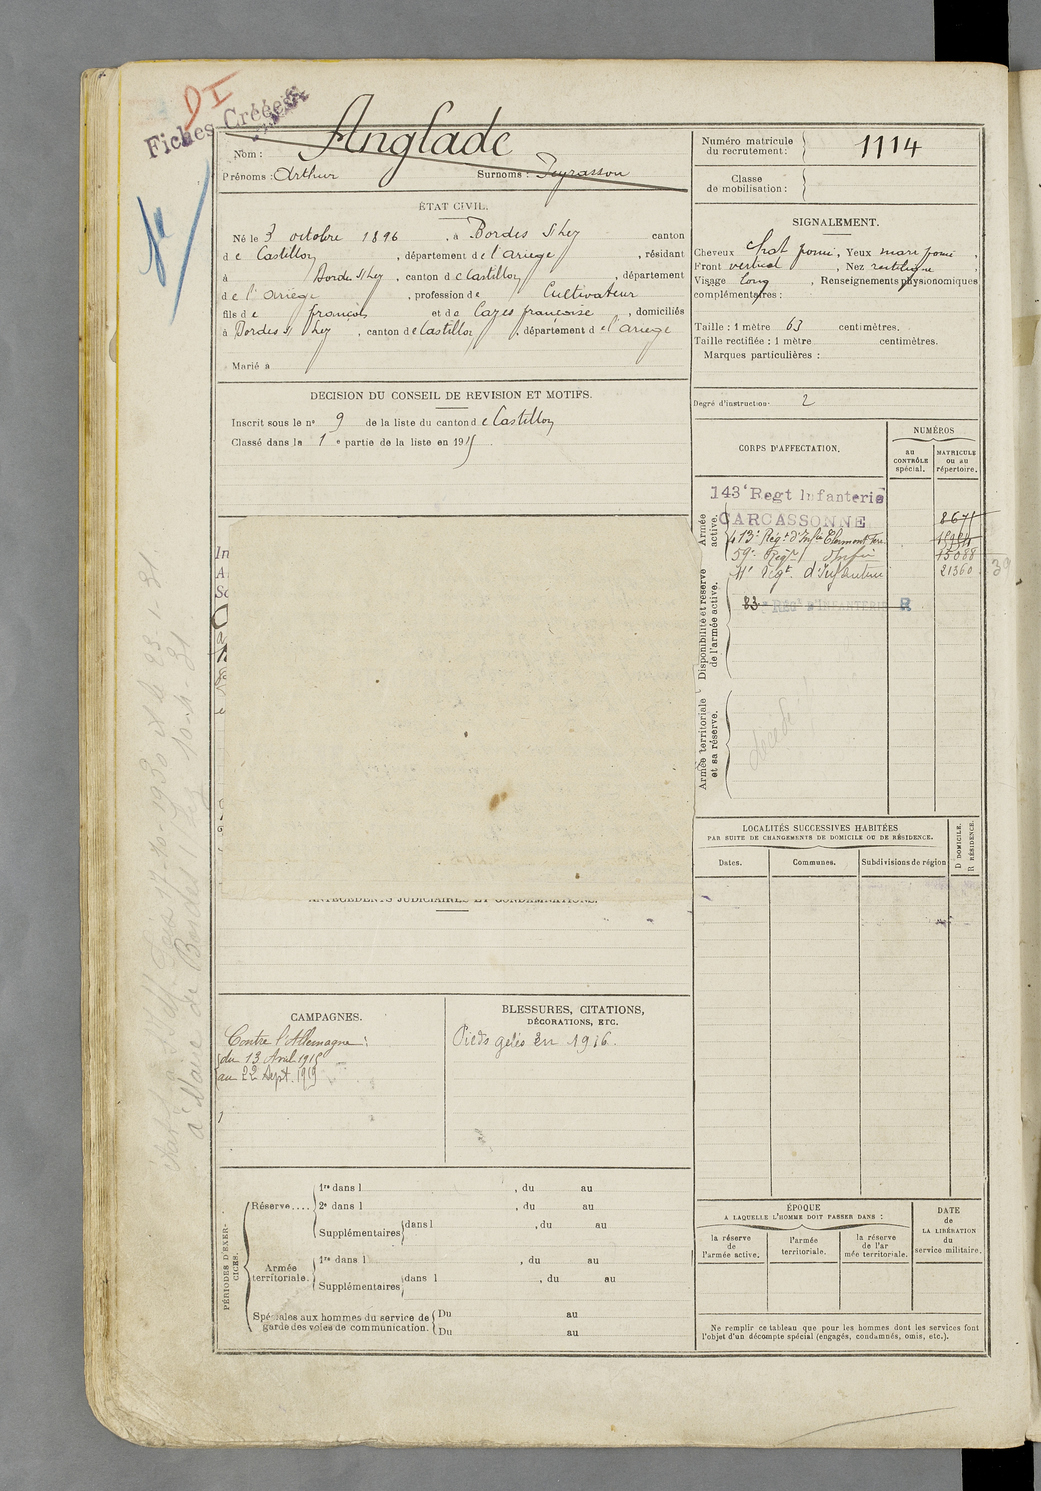 DI
Fiches Créées
Nom : Anglade
Prénoms : Arthur Surnoms : Peyrasson
ÉTAT CIVIL.
Né le 3 octobre 1896, à Bordes s/ Lez canton
de Castillon, département de l'Ariège, résidant
à Bordes s/ Lez, canton de Castillon, département
de l'Ariège, profession de Cultivateur
fils de françois et de Cazes françoise, domiciliés
à Bordes s/ Lez, canton de Castillon, département de l'Ariège
Marié à
DECISION DU CONSEIL DE REVISION ET MOTIFS.
Inscrit sous le nº 9 de la liste du canton de Castillon
Classé dans la 1e partie de la liste en 1915
ANTÉCÉDENTS JUDICIAIRES ET CONDAMNATIONS.
CAMPAGNES.
Contre l'Allemagne :
du 13 Avril 1915
au 22 Sept. 1919
BLESSURES, CITATIONS,
DÉCORATIONS, ETC.
Pieds gelés en 1916.
PÉRIODES D'EXERCICES.
Réserve....
1re dans l , du au
2e dans l , du au
Supplémentaires dans l , du au
Armée territoriale.
1re dans l , du au
Supplémentaires dans l , du au
Spéciales aux hommes du service de garde des voies de communication.
Du au
Du au
Numéro matricule du recrutement : 1114
Classe de mobilisation :
SIGNALEMENT.
Cheveux chat. , Yeux
Front vertical , Nez rectiligne ,
Visage long , Renseignements physionomiques
complémentaires :
Taille : 1 mètre 63 centimètres.
Taille rectifiée : 1 mètre centimètres.
Marques particulières :
Degré d'instruction 2
CORPS D'AFFECTATION.
NUMÉROS
au CONTRÔLE spécial.
MATRICULE ou au répertoire.
Armée active.
143e Regt Infanterie
CARCASSONNE 8671
413e Régt d'Infie Clermont
59e Regt Infie 15088
11e Régt d'Infanterie 21360 39
Disponibilité et réserve de l'armée active.
83e RÉGt D'INFANTERIE R
Armée territoriale et sa réserve.
décédé
LOCALITÉS SUCCESSIVES HABITÉES
PAR SUITE DE CHANGEMENTS DE DOMICILE OU DE RÉSIDENCE.
Dates.
Communes.
Subdivisions de région
D DOMICILE.
R RÉSIDENCE.
ÉPOQUE
A LAQUELLE L'HOMME DOIT PASSER DANS :
la réserve de l'armée active.
l'armée territoriale.
la réserve de l'armée territoriale.
DATE de LA LIBÉRATION du service militaire.
Ne remplir ce tableau que pour les hommes dont les services font
l'objet d'un décompte spécial (engagés, condamnés, omis, etc.).